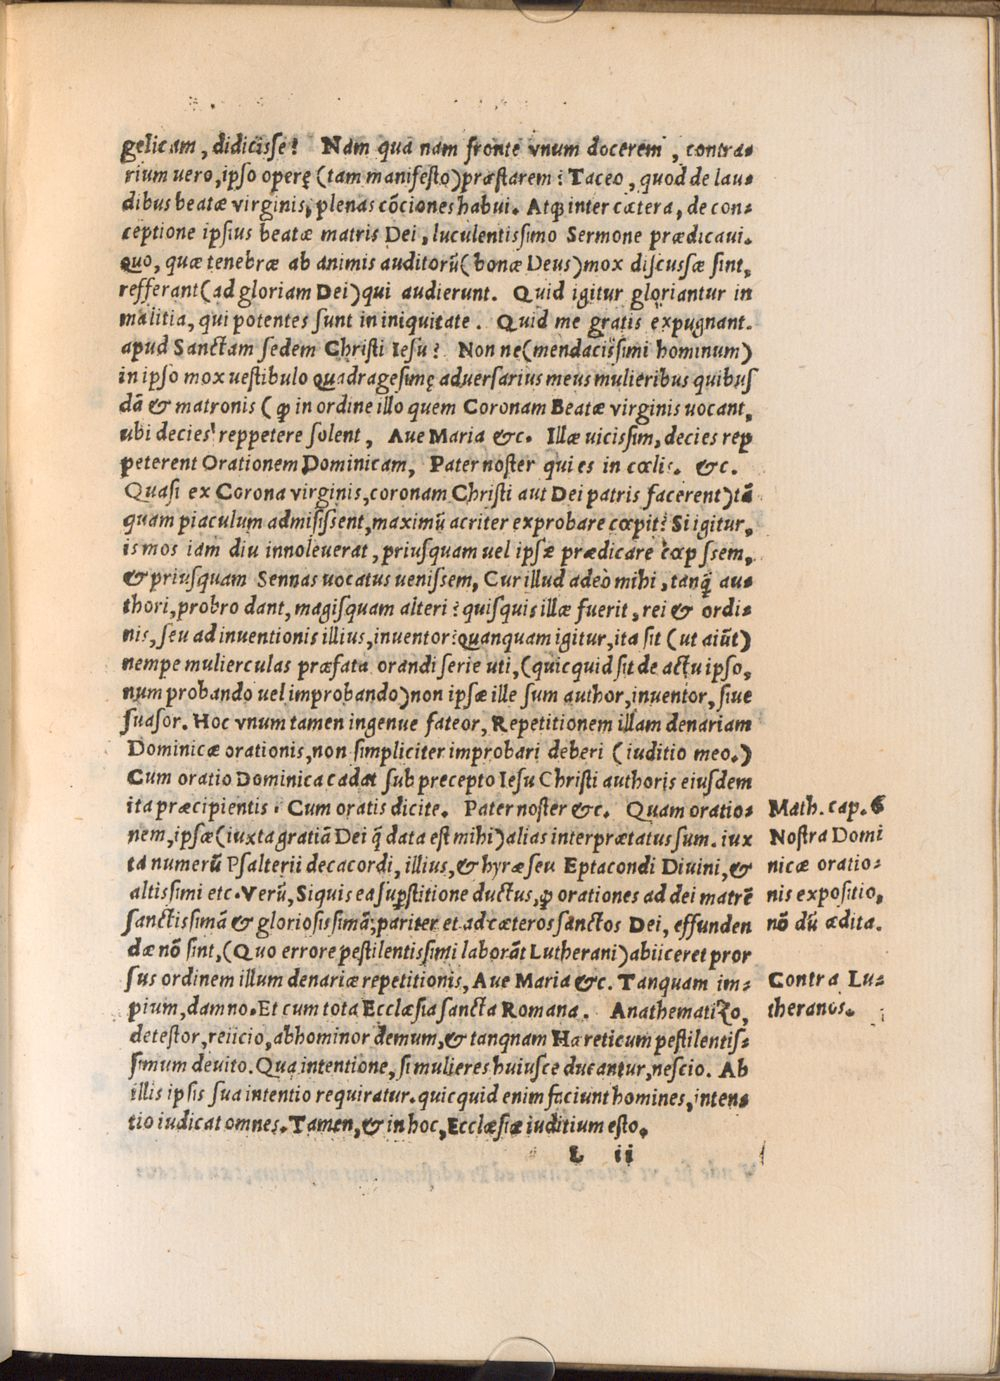 gelicam, didicisse? Nam qua nam fronte vnum docerem, contra-
rium uero, ipso operę (tam manifesto) præstarem? Taceo, quod de lau-
dibus beatæ virginis, plenas cōciones habui. Atq; inter cætera, de con-
ceptione ipsius beatæ matris Dei, luculentissimo Sermone prædicaui.
Quo, quæ tenebræ ab animis auditorū (bonæ Deus) mox discussæ sint,
refferant (ad gloriam Dei) qui audierunt. Quid igitur gloriantur in
malitia, qui potentes sunt in iniquitate. Quid me gratis expugnant.
apud Sanctam sedem Christi Iesu? Non ne (mendacissimi hominum)
in ipso mox uestibulo quadragesimę aduersarius meus mulieribus quibus
dā & matronis (ꝙ in ordine illo quem Coronam Beatæ virginis uocant,
ubi decies reppetere solent, Aue Maria &c. Illæ uicissim, decies rep
peterent Orationem Dominicam, Pater noster qui es in cœlis. &c.
Quasi ex Corona virginis, coronam Christi aut Dei patris facerent) tā
quam piaculum admisissent, maximū acriter exprobare cœpit? Si igitur,
is mos iam diu innoleuerat, priusquam uel ipse prædicare cœp ssem,
& priusquam Sennas uocatus uenissem, Cur illud adeò mihi, tanq̄ au-
thori, probro dant, magisquam alteri? quisquis illæ fuerit, rei & ordi-
nis, seu ad inuentionis illius, inuentor? quanquam igitur, ita sit (ut aiūt)
nempe mulierculas præfata orandi serie uti, (quicquid sit de actu ipso,
num probando uel improbando) non ipsæ ille sum author, inuentor, siue
suasor. Hoc vnum tamen ingenue fateor, Repetitionem illam denariam
Dominicæ orationis, non simpliciter improbari deberi (iuditio meo.)
Cum oratio Dominica cadat sub precepto Iesu Christi authoris eiusdem
ita præcipientis. Cum oratis dicite. Pater noster &c. Quam oratio-
nem, ipsæ (iuxta gratiā Dei q̄ data est mihi) alias interprætatus sum. iux
ta numerū Psalterii decacordi, illius, & hyræ seu Eptacondi Diuini, &
altissimi etc. Verū, Siquis ea supstitione ductus, ꝙ orationes ad dei matrē
sanctissimā & gloriosissimā, pariter et ad cæteros sanctos Dei, effunden
dæ nō sint, (Quo errore pestilentissimi laborāt Lutherani) abiiceret pror
sus ordinem illum denariæ repetitionis, Aue Maria &c. Tanquam im-
pium, damno. Et cum tota Ecclæsia sancta Romana. Anathematizo,
detestor, reiicio, abhominor demum, & tanqnam Hæreticum pestilentis-
simum deuito. Qua intentione, si mulieres huiusce ducantur, nescio. Ab
illis ipsis sua intentio requiratur. quicquid enim faciunt homines, inten-
tio iudicat omnes. Tamen, & in hoc, Ecclæsiæ iuditium esto.
L ii
Math. cap. 6
Nostra Domi
nicæ oratio-
nis expositio,
nō dū ædita.
Contra Lu-
theranos.